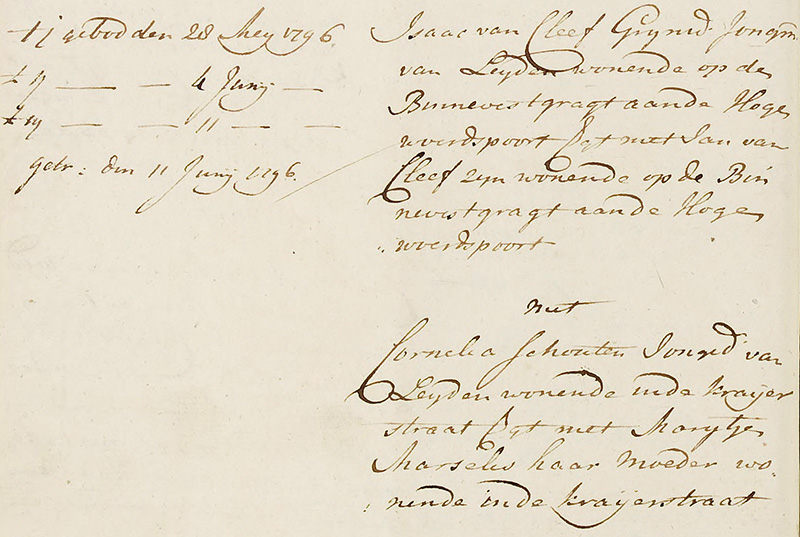 t 1 gebod den 28 Mey 1796
t 2 — — 4 Junij —
t 3 — — 11 — —
getr: den 11 Junij 1796.
Isaac van Cleef Jongm
van Leyden wonende op de
Binnevestgragt aande Hoge
woerdspoort Vgt met Jan van
Cleef zyn wonende op de Bin
nevestgragt aande Hoge
woerdspoort
met
Cornelia Schouten Jongd van
Leyden wonende inde kraijer
straat Vgt met Marytje
Marselis haar moeder wo
nende inde kraijerstraat